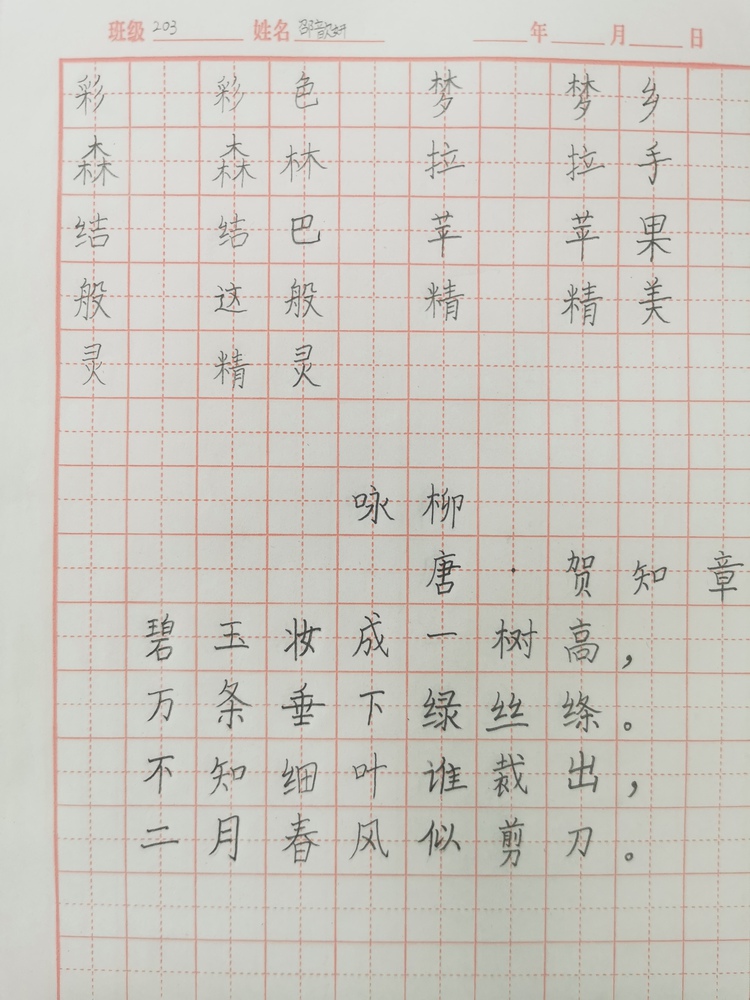 班级 203 姓名 邵歆妍 年 月 日
彩 彩色 梦 梦乡
森 森林 拉 拉手
结 结巴 苹 苹果
般 这般 精 精美
灵 精灵
咏柳
唐·贺知章
碧玉妆成一树高，
万条垂下绿丝绦。
不知细叶谁裁出，
二月春风似剪刀。